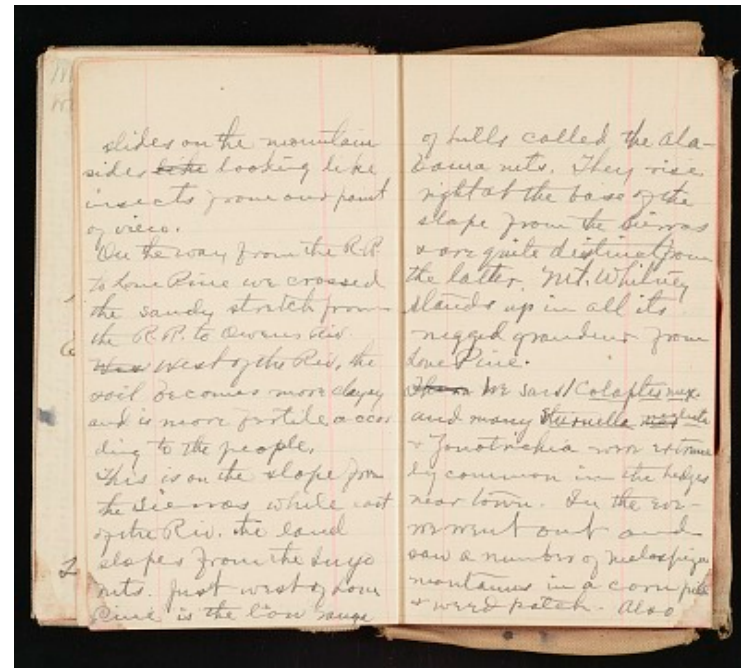 slides on the mountain
sides like looking like
insects from our point
of view.
On the way from the R.R.
to Lone Pine we crossed
the sandy stretch from
the R.R. to Owens Riv.
West of the Riv. the
soil becomes more clayey
and is more fertile accor
ding to the people.
This is on the slope from
the Sierras while east
of the Riv. the land
slopes from the Inyo
mts. Just west of Lone
Pine is the low range
of hills called the Ala-
bama mts. They rise
right at the base of the
slope from the Sierras
& are quite distinct from
the latter. Mt. Whitney
stands up in all its
rugged grandeur from
Lone Pine.
We saw 1 Colaptes mex.
and many Sturnella neglecta
& Zonotrichia were extreme
ly common in the hedges
near town. In the eve-
we went out and
saw a number of melospiza
montanus in a corn
& weed patch. Also